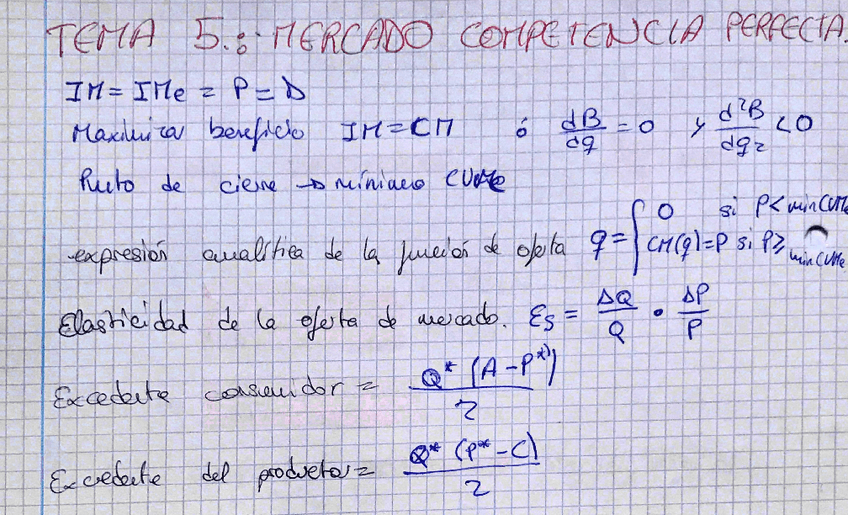 TEMA 5.: MERCADO COMPETENCIA PERFECTA.
IM = IMe = P = D
Maximizar beneficio IM = CM ó dB/dq = 0 y d²B/dq2 < 0
Punto de cierre → mínimo CVMe
expresión analítica de la función de oferta q = { 0 si P < minCVMe
CM(q) = P si P ≥ minCVMe
Elasticidad de la oferta de mercado. Es = ΔQ/Q • ΔP/P
Excedente consumidor = Q* (A - P*)/2
Excedente del productor = Q* (P* - C)/2